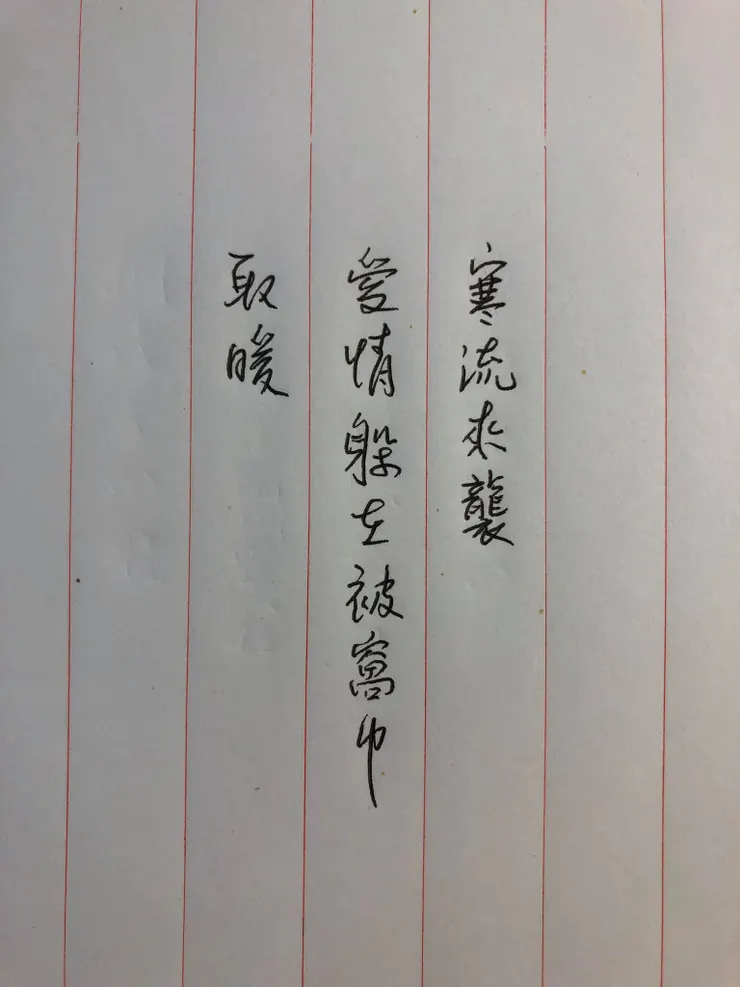 寒流來襲
愛情躲在被窩中
取暖